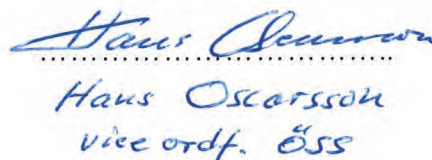 Hans Oscarsson
Hans Oscarsson
vice ordf. ÖSS